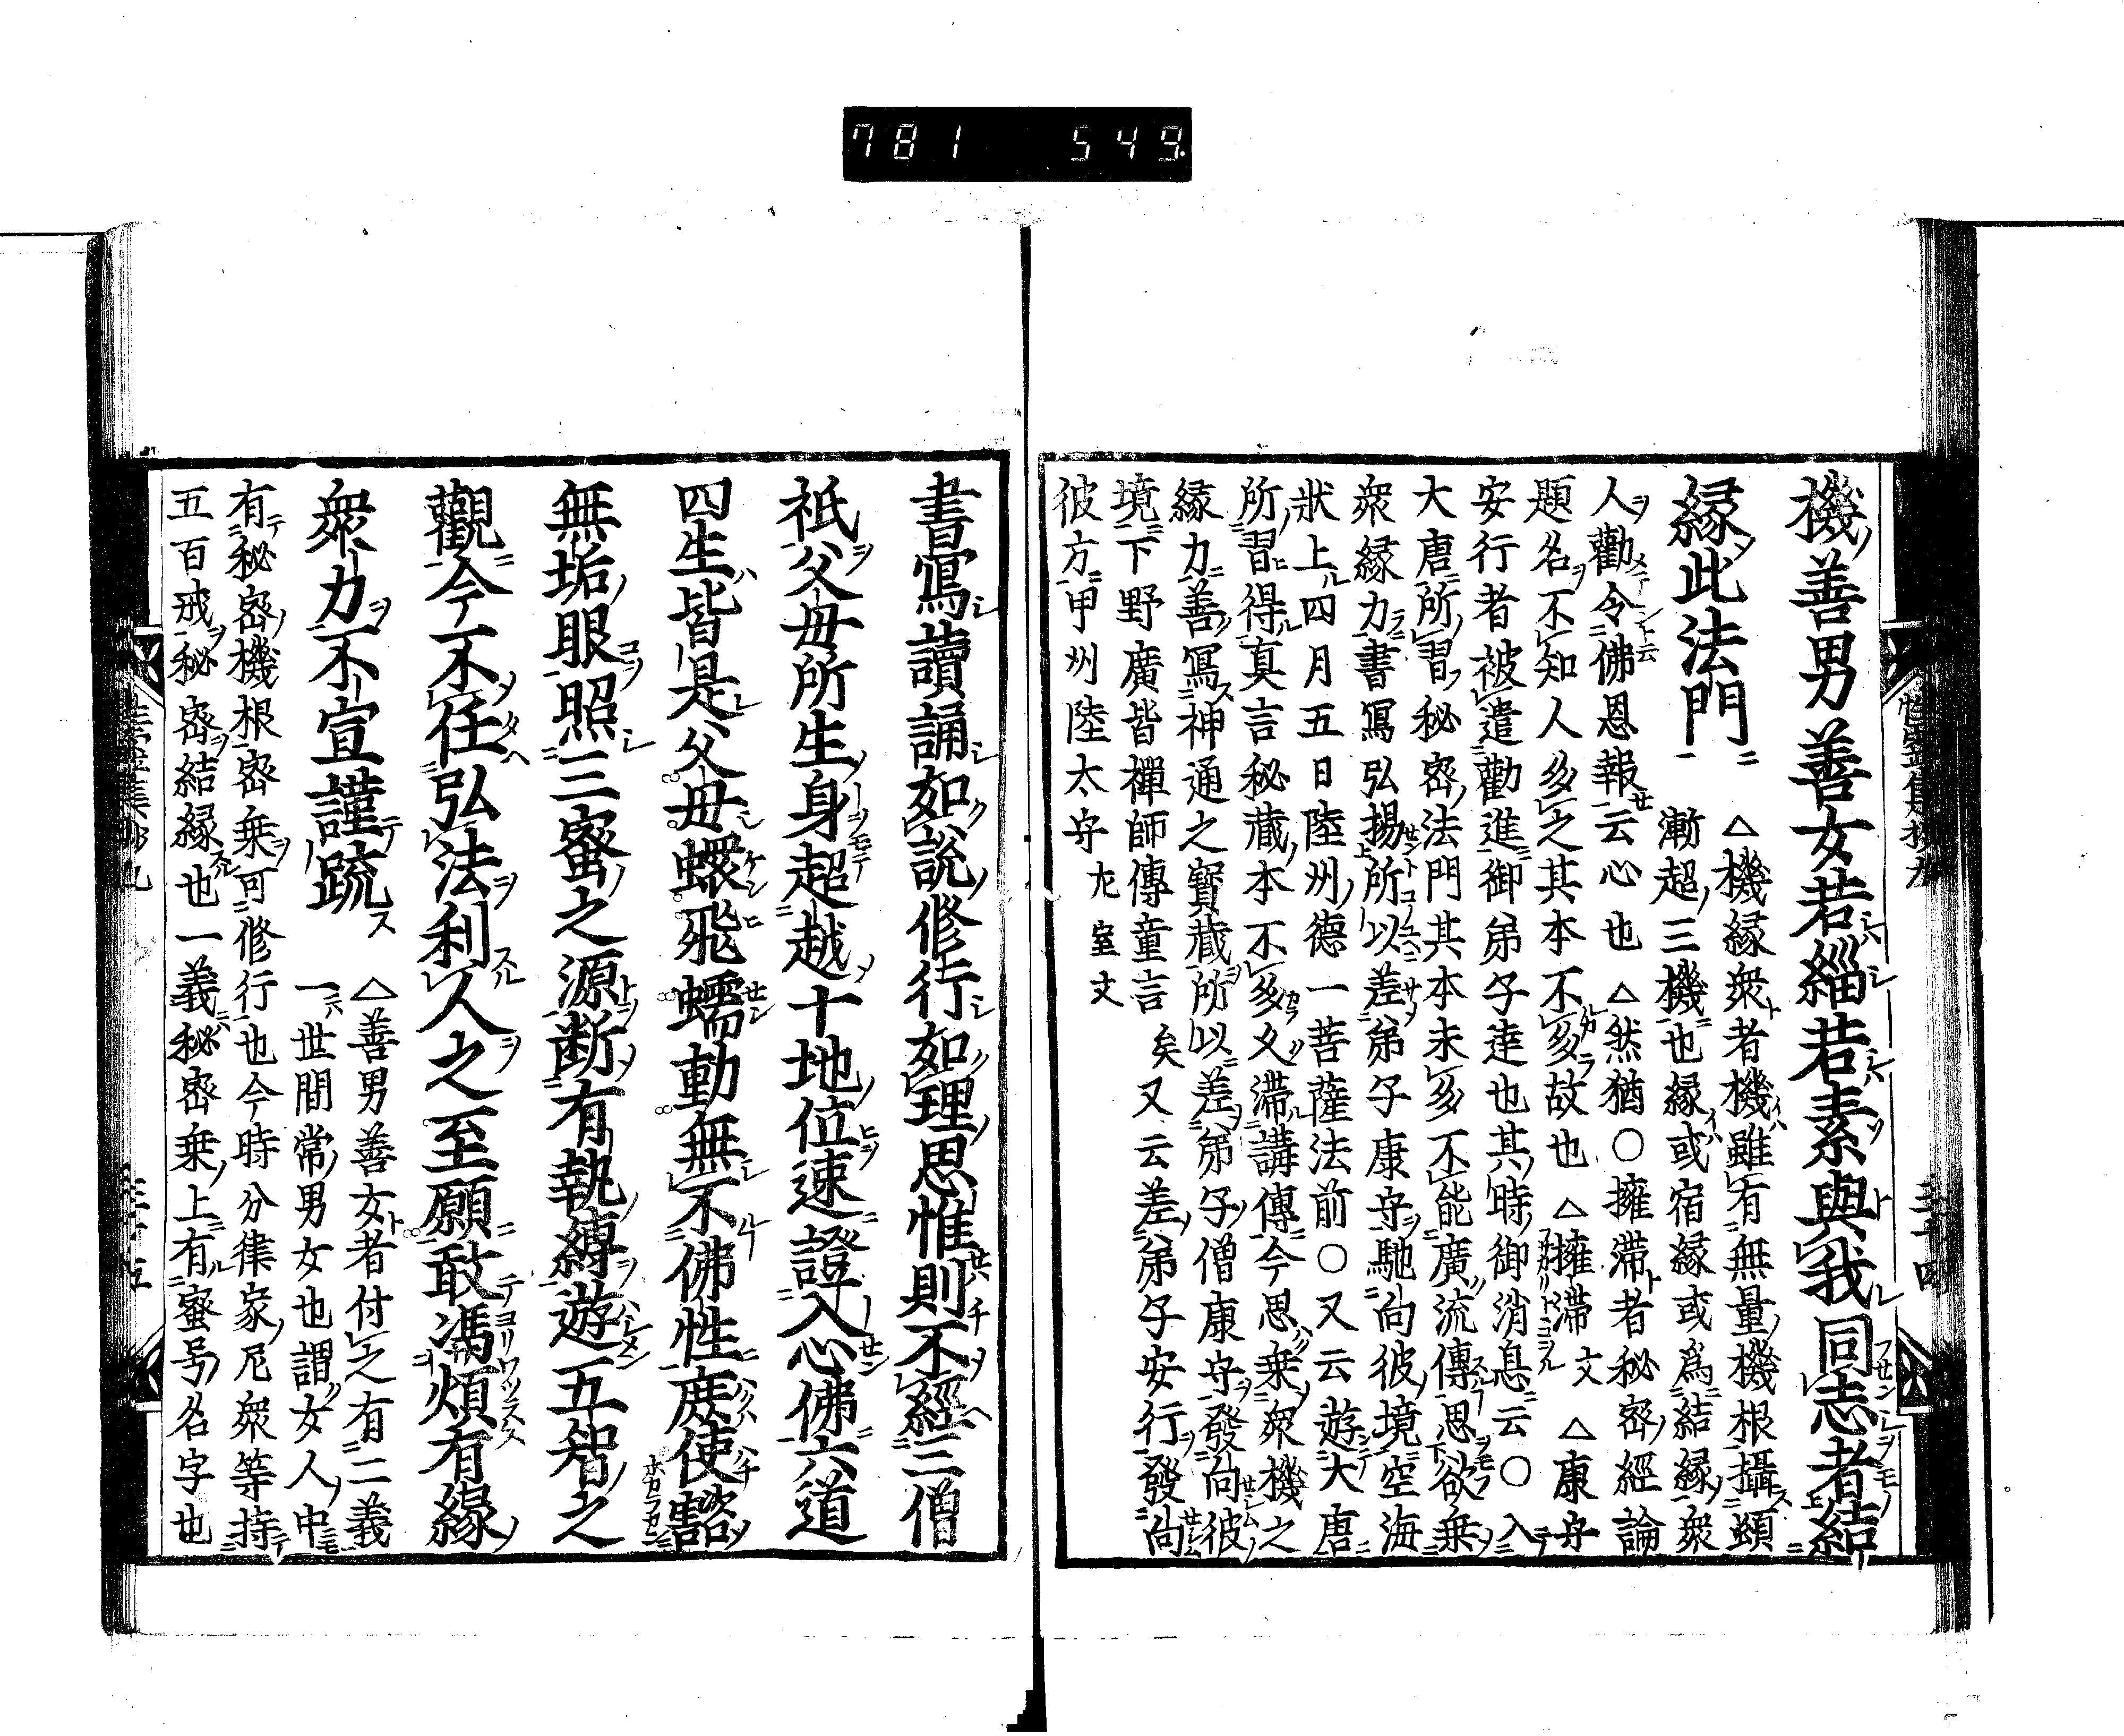 781 549.
機善男善女若緇若素與我同志者結
縁此法門 △機縁衆者機雖有無量機根攝頓
漸超三機也縁或宿縁或爲結縁衆
人勸令佛恩報云心也 △然猶○擁滯者秘密經論
題名不知人多之其本不多故也 △擁滯文 △康守
安行者被遣勸進御弟子達也其時御消息云○入
大唐所習秘密法門其本未多不能廣流傳思欲乗
衆縁力書寫弘揚所以差弟子康守馳向彼境空海
狀上四月五日陸州德一菩薩法前○又云遊大唐
所習得真言秘藏本不多久滯講傳今思乗衆機之
縁力善寫神通之寶藏所以差弟子僧康守發向彼
境下野廣皆禪師傳童言矣又云差弟子安行發向
彼方甲州陸太守左室文
書寫讀誦如說修行如理思惟則不經三僧
祇父母所生身超越十地位速證入心佛六道
四生皆是父母蠉飛蠕動無不佛性庶使豁
無垢眼照三蜜之源断有執縛遊五智之
觀今不任弘法利人之至願敢馮煩有縁
衆力不宣謹疏 △善男善女者付之有二義
一世間常男女也謂女人中
有秘密機根密乗可修行也今時分律家尼衆等持
五百戒秘密結縁也一義秘密乗上有蜜号名字也